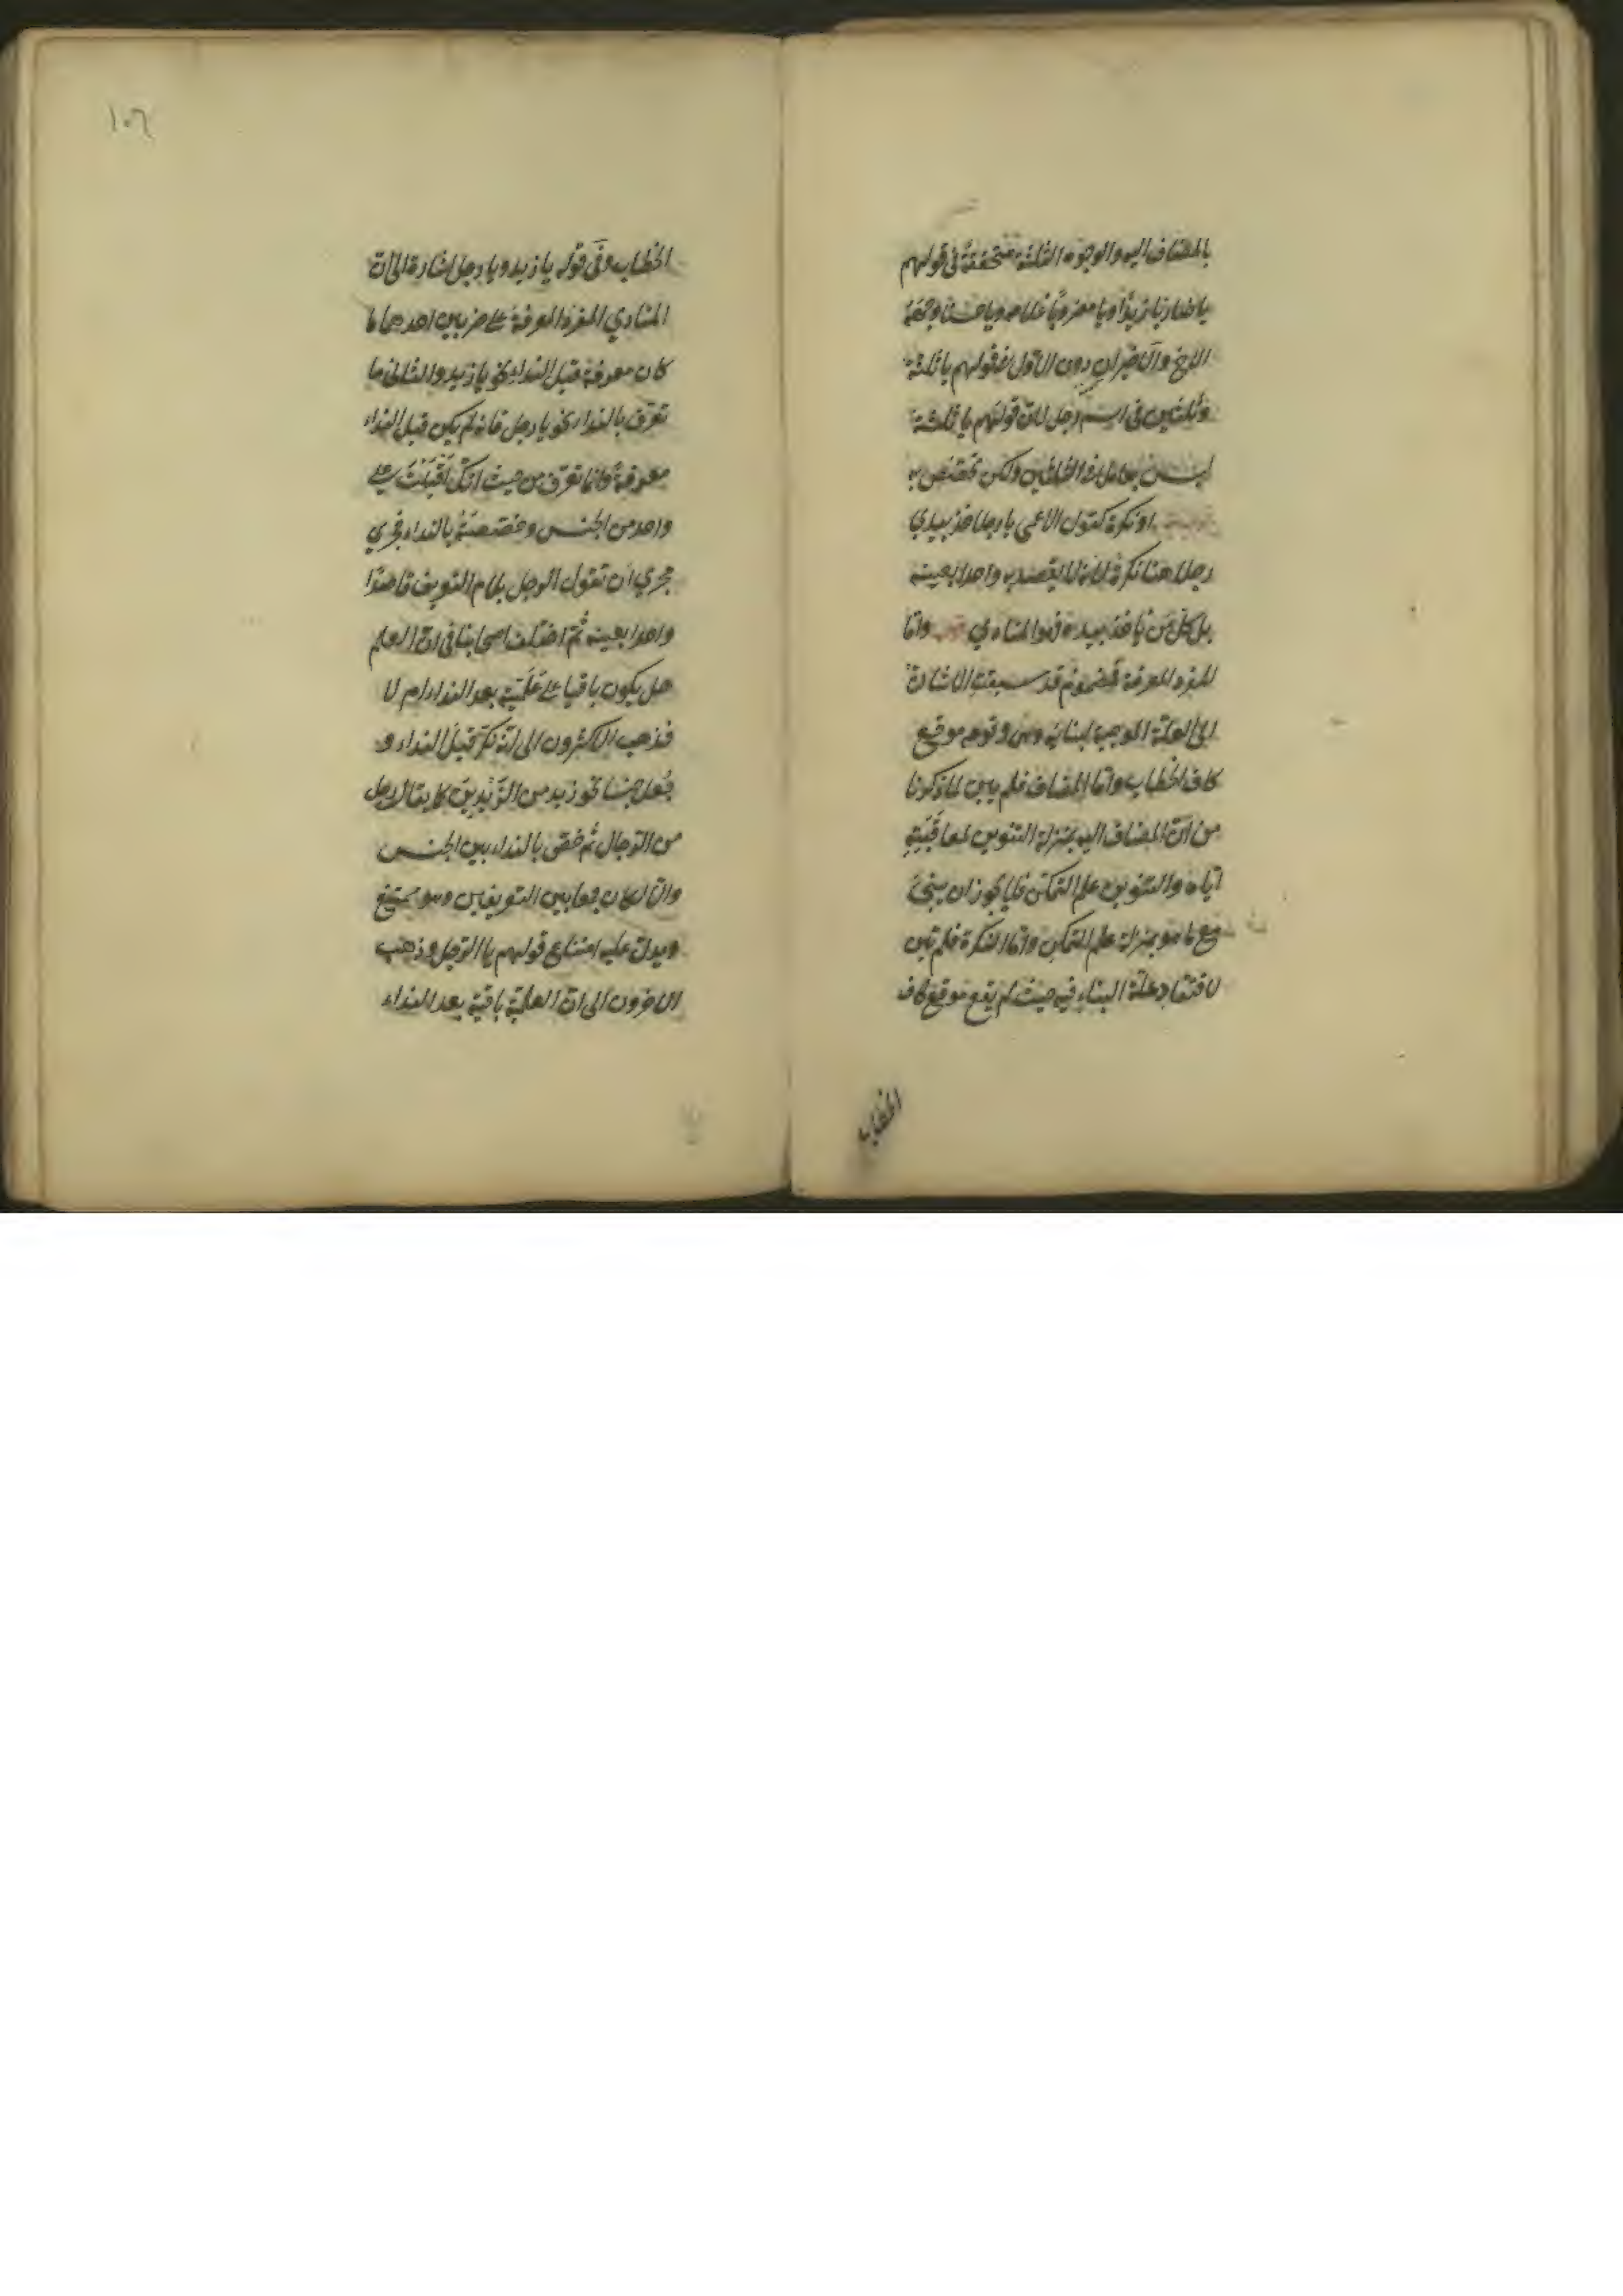 بالمضاف اليه والوجوه الثلثة متحققة فى قولهم
يا ضاربا زيدًا ويا مضروبًا غلامه ويا حسنا وجهَهُ
الاخ والاخيران دون الاول فى قولهم يا ثلثة
وثلثين فى اسم رجل لان قولهم يا ثلثة
ليس بعامل فى الثلثين ولكن تختص به
او نكرة كقول الاعمى يا رجلا خذ بيدي
رجلا هنا نكرة لانه لا يقصد به واحدا بعينه
بل كل من ياخذ بيده فهو المنادي وامّا
المفرد المعرفة فمضموم قد سبقت الاشارة
الى العلة الموجبة لبنائه وهى وقوعه موقع
كاف الخطاب وامّا المضاف فلم يبن لما ذكرنا
من انّ المضاف اليه بمنزلة التنوين لمعاقبته
ايّاه والتنوين علم التمكن فلا يجوز ان يبنى
مع ما هو بمنزلة علم التمكن وامّا النكرة فلم تبن
لافتقاد علة البناء فيه حيث لم يقع موقع كاف
الخطاب
١٠٦
الخطاب وفى قوله يا زيد ويا رجل اشارة الى انّ
المنادي المفرد المعرفة على ضربين احدهما ما
كان معرفة قبل النداء نحو يا زيد والثانى ما
تعرّف بالنداء نحو يا رجل فانه لم يكن قبل النداء
معرفة وانما تعرّف من حيث انك اقبلت على
واحد من الجنس وخصصته بالنداء فجري
مجري ان تقول الرجل بلام التعريف قاصدًا
واحدا بعينه ثم اختلف اصحابنا فى انّ العلم
هل يكون باقيا على علميّته بعد النداء ام لا
فذهب الاكثرون الى انه نكّر قبل النداء و
جعل جنسا نحو زيد من الزَّيْدِينَ كما يقال رجل
من الرّجال ثم خصّ بالنداء من بين الجنس
والّا لكان جمعا بين التعريفين وهو ممتنع
ويدلّ عليه امتناع قولهم يا الرّجل وذهب
الاخرون الى انّ العلميّة باقية بعد النداء